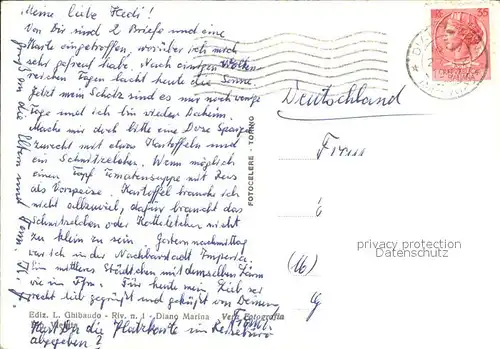 Meine liebe Hedi!
Von Dir sind 2 Briefe und eine
Karte eingetroffen, worüber ich mich
sehr gefreut habe. Nach einigen
reichen Tagen lacht heute die Sonne.
Jetzt mein Schatz sind es nur noch wenige
Tage und ich bin wieder daheim.
Mache mir doch bitte eine Dose Spargel
zurecht mit etwas Kartoffeln und
ein Schnitzelchen. Wenn möglich
einen Topf Tomatensuppe mit Reis
als Vorspeise. Kartoffel brauche ich
nicht allzuviel, dafür braucht das
Schnitzelchen oder Kottelettchen nicht
zu klein zu sein. Gestern nachmittag
war ich in der Nachbarstadt Imperia.
Ein mittleres Städtchen mit demselben Lärm
wie in Ffm. Für heute mein Lieb sei
recht lieb gegrüßt und geküßt von Deinem
die Platzkarte im Reisebüro
abgegeben?
Gruß an die Eltern und
Deutschland
Frau
35
FOTOCELERE - TORINO
Ediz. L. Ghibaudo - Riv. n. 1 - Diano Marina
Vera Fotografia
privacy protection
Datenschutz